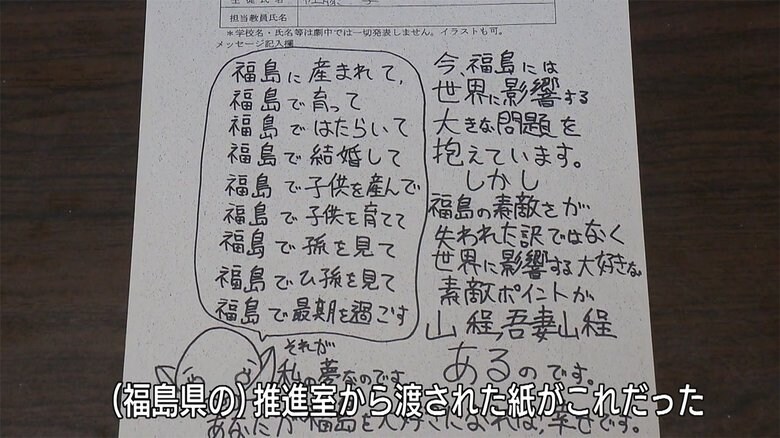 担当教員氏名
*学校名・氏名等は劇中では一切発表しません。イラストも可。
メッセージ記入欄
福島に産まれて、
福島で育って
福島ではたらいて
福島で結婚して
福島で子供を産んで
福島で子供を育てて
福島で孫を見て
福島でひ孫を見て
福島で最期を過ごす
それが
私の夢なのです
今、福島には
世界に影響する
大きな問題を
抱えています。
しかし
福島の素敵さが
失われた訳ではなく
世界に影響する大好きな
素敵ポイントが
山程、吾妻山程
あるのです。
あなたが福島を大好きになれば、幸せです。
(福島県の)推進室から渡された紙がこれだった